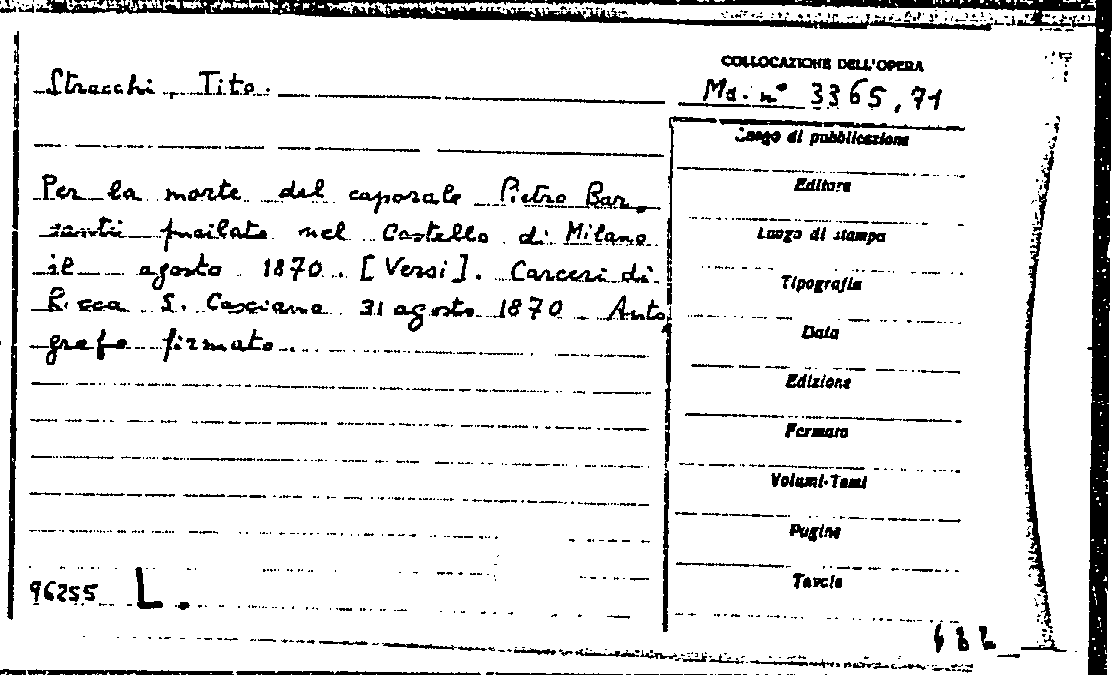 COLLOCAZIONE DELL'OPERA
Stracchi, Tito.
Md. n° 3365,71
Luogo di pubblicazione
Per la morte del caporale Pietro Bar-
Editore
santi fucilato nel Castello di Milano
Luogo di stampa
il agosto 1870. [Versi]. Carceri di
Tipografia
Rocca S. Casciano 31 agosto 1870 Auto
Data
grafo firmato.
Edizione
Formato
Volumi-Tomi
Pagine
Tavole
96255 L.